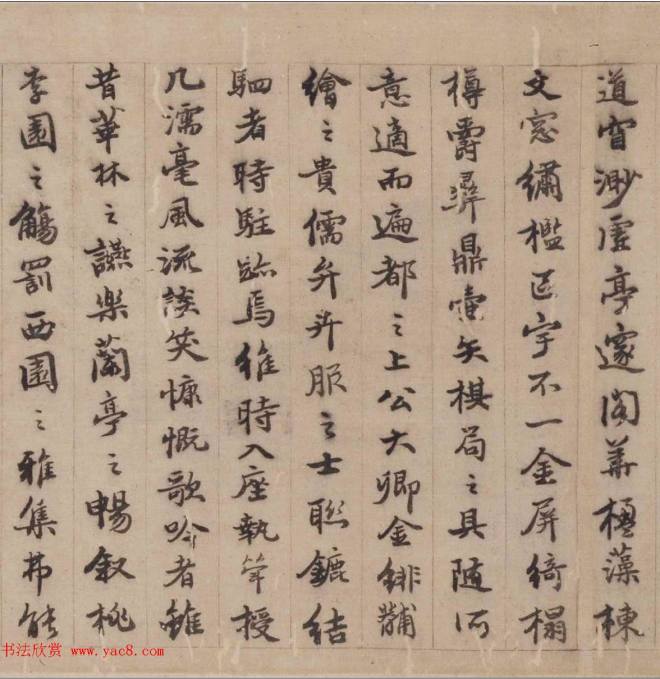 道窅渺虛亭邃閣華楹藻棟
文窓繡檻區宇不一金屏綺榻
樽爵彛鼎壷矢棋局之具随所
意適而遍都之上公大卿金緋黼
繪之貴儒弁卉服之士聯鑣結
駟者時駐跡焉維時入座執筆授
几濡毫風流談笑慷慨歌吟者雖
昔華林之讌樂蘭亭之暢叙桃
李園之觴罰西園之雅集弗能
书法欣赏 www.yac8.com